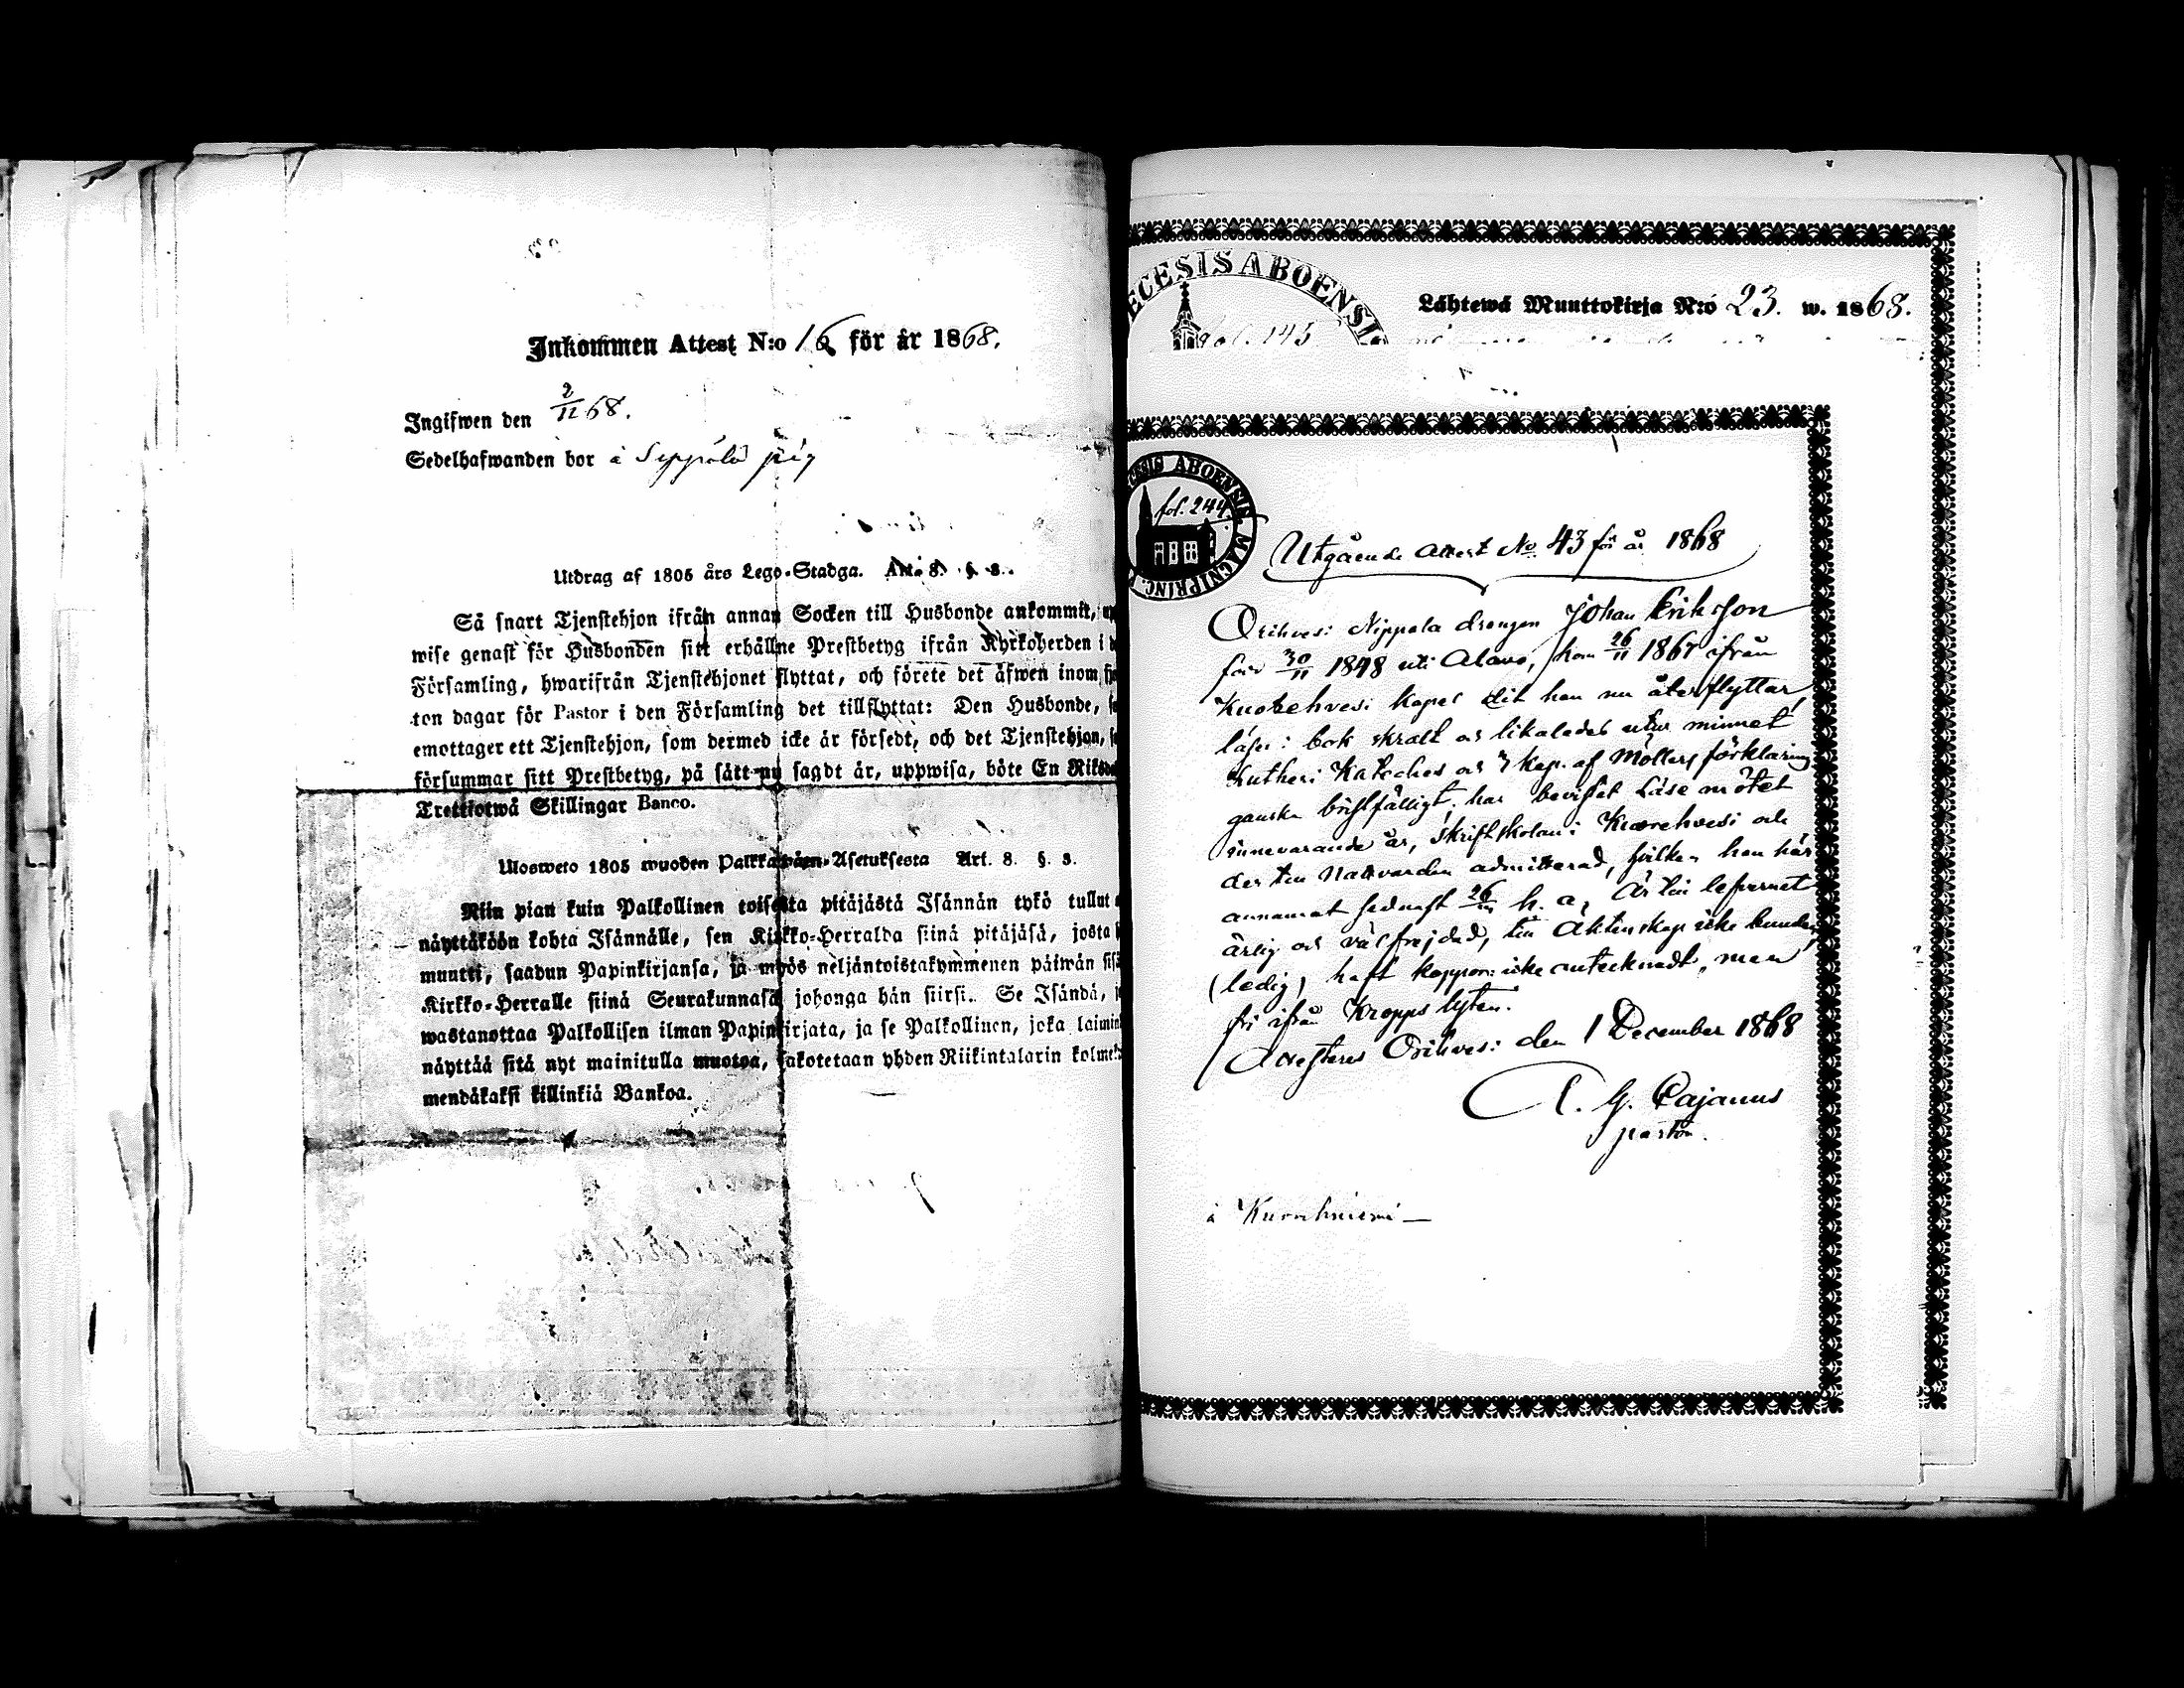 Inkommen Attest N:o 16 för år 1868.
Ingifwen den 2/11 68.
Sedelhafwanden bor å Seppälä
Utdrag af 1805 års Lego-Stadga. Art. 8. §. 3.
Så snart Tjenstehjon ifrån annan Socken till Husbonde ankommit,
wise genast för Husbonden sitt erhållne Prestbetyg ifrån Kyrkoherden i
Församling, hwarifrån Tjenstehjonet flyttat, och förete det äfwen inom
ton dagar för Pastor i den Församling det tillflyttat: Den Husbonde,
emottager ett Tjenstehjon, som dermed icke är försedt, och det Tjenstehjon,
försummar sitt Prestbetyg, på sätt nu sagdt är, uppwisa, böte En Riksd
Trettiotwå Skillingar Banco.
Ulosweto 1805 wuoden Palkkawäen-Asetuksesta Art. 8. §. 3.
Niin pian kuin Palkollinen toisesta pitäjästä Isännän tykö tullut
näyttäköön kohta Isännälle, sen Kirkko-Herralda siinä pitäjäsä, josta
muutti, saadun Papinkirjansa, ja myös neljäntoistakymmenen päiwän sisä
Kirkko-Herralle siinä Seurakunnasa johonga hän siirsi. Se Isändä,
wastanottaa Palkollisen ilman Papinkirjata, ja se Palkollinen, joka laimin
näyttää sitä nyt mainitulla muotoa, sakotetaan yhden Riikintalarin kolme
mendäkaksi killinkiä Bankoa.
ECESIS ABOENSI
fol. 145
Lähtewä Muuttokirja N:o 23. w. 1868.
CESIS ABOENSIS MAGNI PRINC
fol. 244.
Utgående attest No 43 för år 1868
Orihvesi Nippala drengen Johan Eriksson
född 30/11 1848 uti Alavo, kom 26/11 1867 ifrån
Kuorehvesi Kapel dit han nu återflyttar,
läser i bok skralt och likaledes utur minnet
Lutheri Kateches och 3 kap. af Möllers förklaring
ganska bristfälligt; har bevistat Läsemötet
innevarande år, Skriftskolan i Kuorehvesi och
der till Nattvarden admitterad, hvilken han här
annamat sednast 26/ h. a, Är till lefvernet
ärlig och välfrejdad, till Äktenskap icke bunden,
(ledig) haft koppor: icke antecknadt, men
fri ifrån Kropps lyten.
Attesteras Orihvesi den 1 December 1868
A. G. Cajanus
pastor.
å Kuorehniemi —